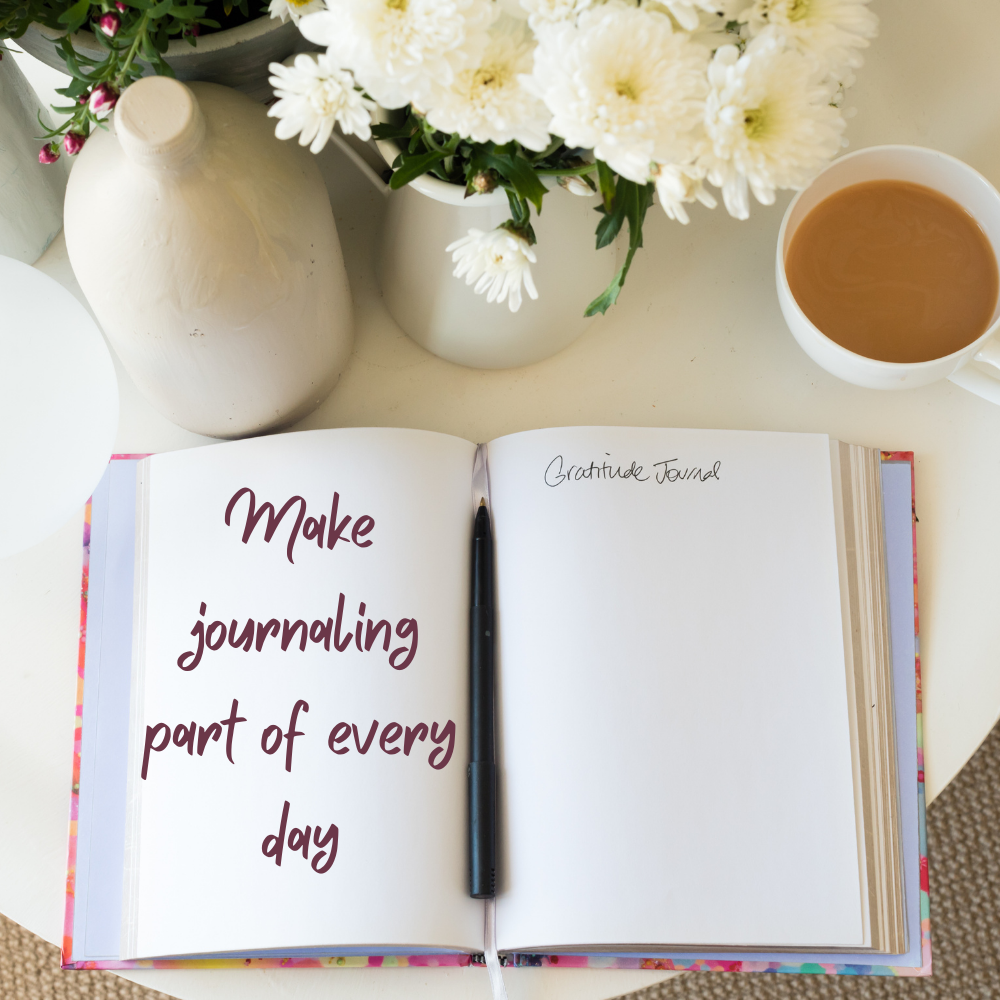 Make
journaling
part of every
day
Gratitude Journal